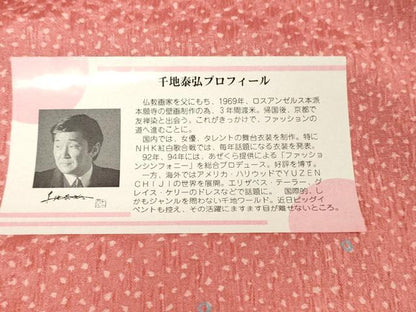 千地泰弘プロフィール
仏教画家を父にもち、1969年、ロスアンゼルス本派
本願寺の壁画制作の為、3年間渡米。帰国後、京都で
友禅染と出会う。これがきっかけで、ファッションの
道へ進むことに。
国内では、女優、タレントの舞台衣装を制作。特に
NHK紅白歌合戦では、毎年話題になる衣装を発表。
92年、94年には、あぜくら提供による「ファッショ
ンシンフォニー」を総合プロデュース。好評を博す。
一方、海外ではアメリカ・ハリウッドでYUZEN
CHIJIの世界を展開。エリザベス・テーラー、グ
レイス・ケリーのドレスなどで話題に。国際的、し
かもジャンルを問わない千地ワールド。近日ビッグイ
ベントも控え、その活躍にますます目が離せないところ。